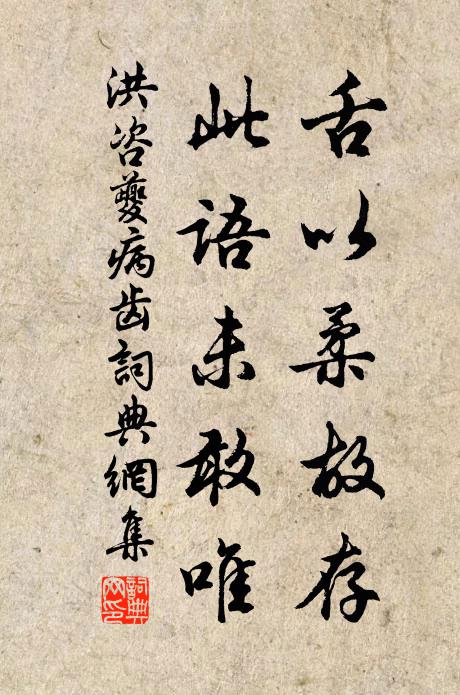 舌以柔故存
此語未敢唯
洪咨夔病齿詞典網集
詞典网印